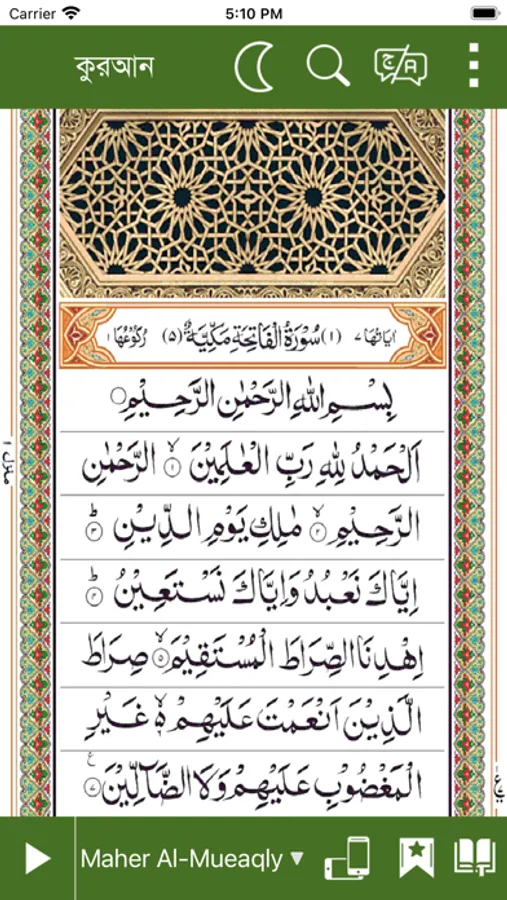 Carrier 5:10 PM
কুরআন
اٰيَاتُهَا ٧ (١) سُوْرَةُ الْفَاتِحَةِ مَكِّيَّةٌ (٥) رُكُوْعُهَا ١
بِسْمِ اللهِ الرَّحْمٰنِ الرَّحِيْمِ
اَلْحَمْدُ لِلّٰهِ رَبِّ الْعٰلَمِيْنَ ۙ﴿١﴾ الرَّحْمٰنِ
الرَّحِيْمِ ۙ﴿٢﴾ مٰلِكِ يَوْمِ الدِّيْنِ ؕ﴿٣﴾
اِيَّاكَ نَعْبُدُ وَاِيَّاكَ نَسْتَعِيْنُ ؕ﴿٤﴾
اِهْدِنَا الصِّرَاطَ الْمُسْتَقِيْمَ ۙ﴿٥﴾ صِرَاطَ
الَّذِيْنَ اَنْعَمْتَ عَلَيْهِمْ ۙ۬ غَيْرِ
الْمَغْضُوْبِ عَلَيْهِمْ وَلَا الضَّآلِّيْنَ ﴿٧﴾
منزل ١
Maher Al-Mueaqly ▼